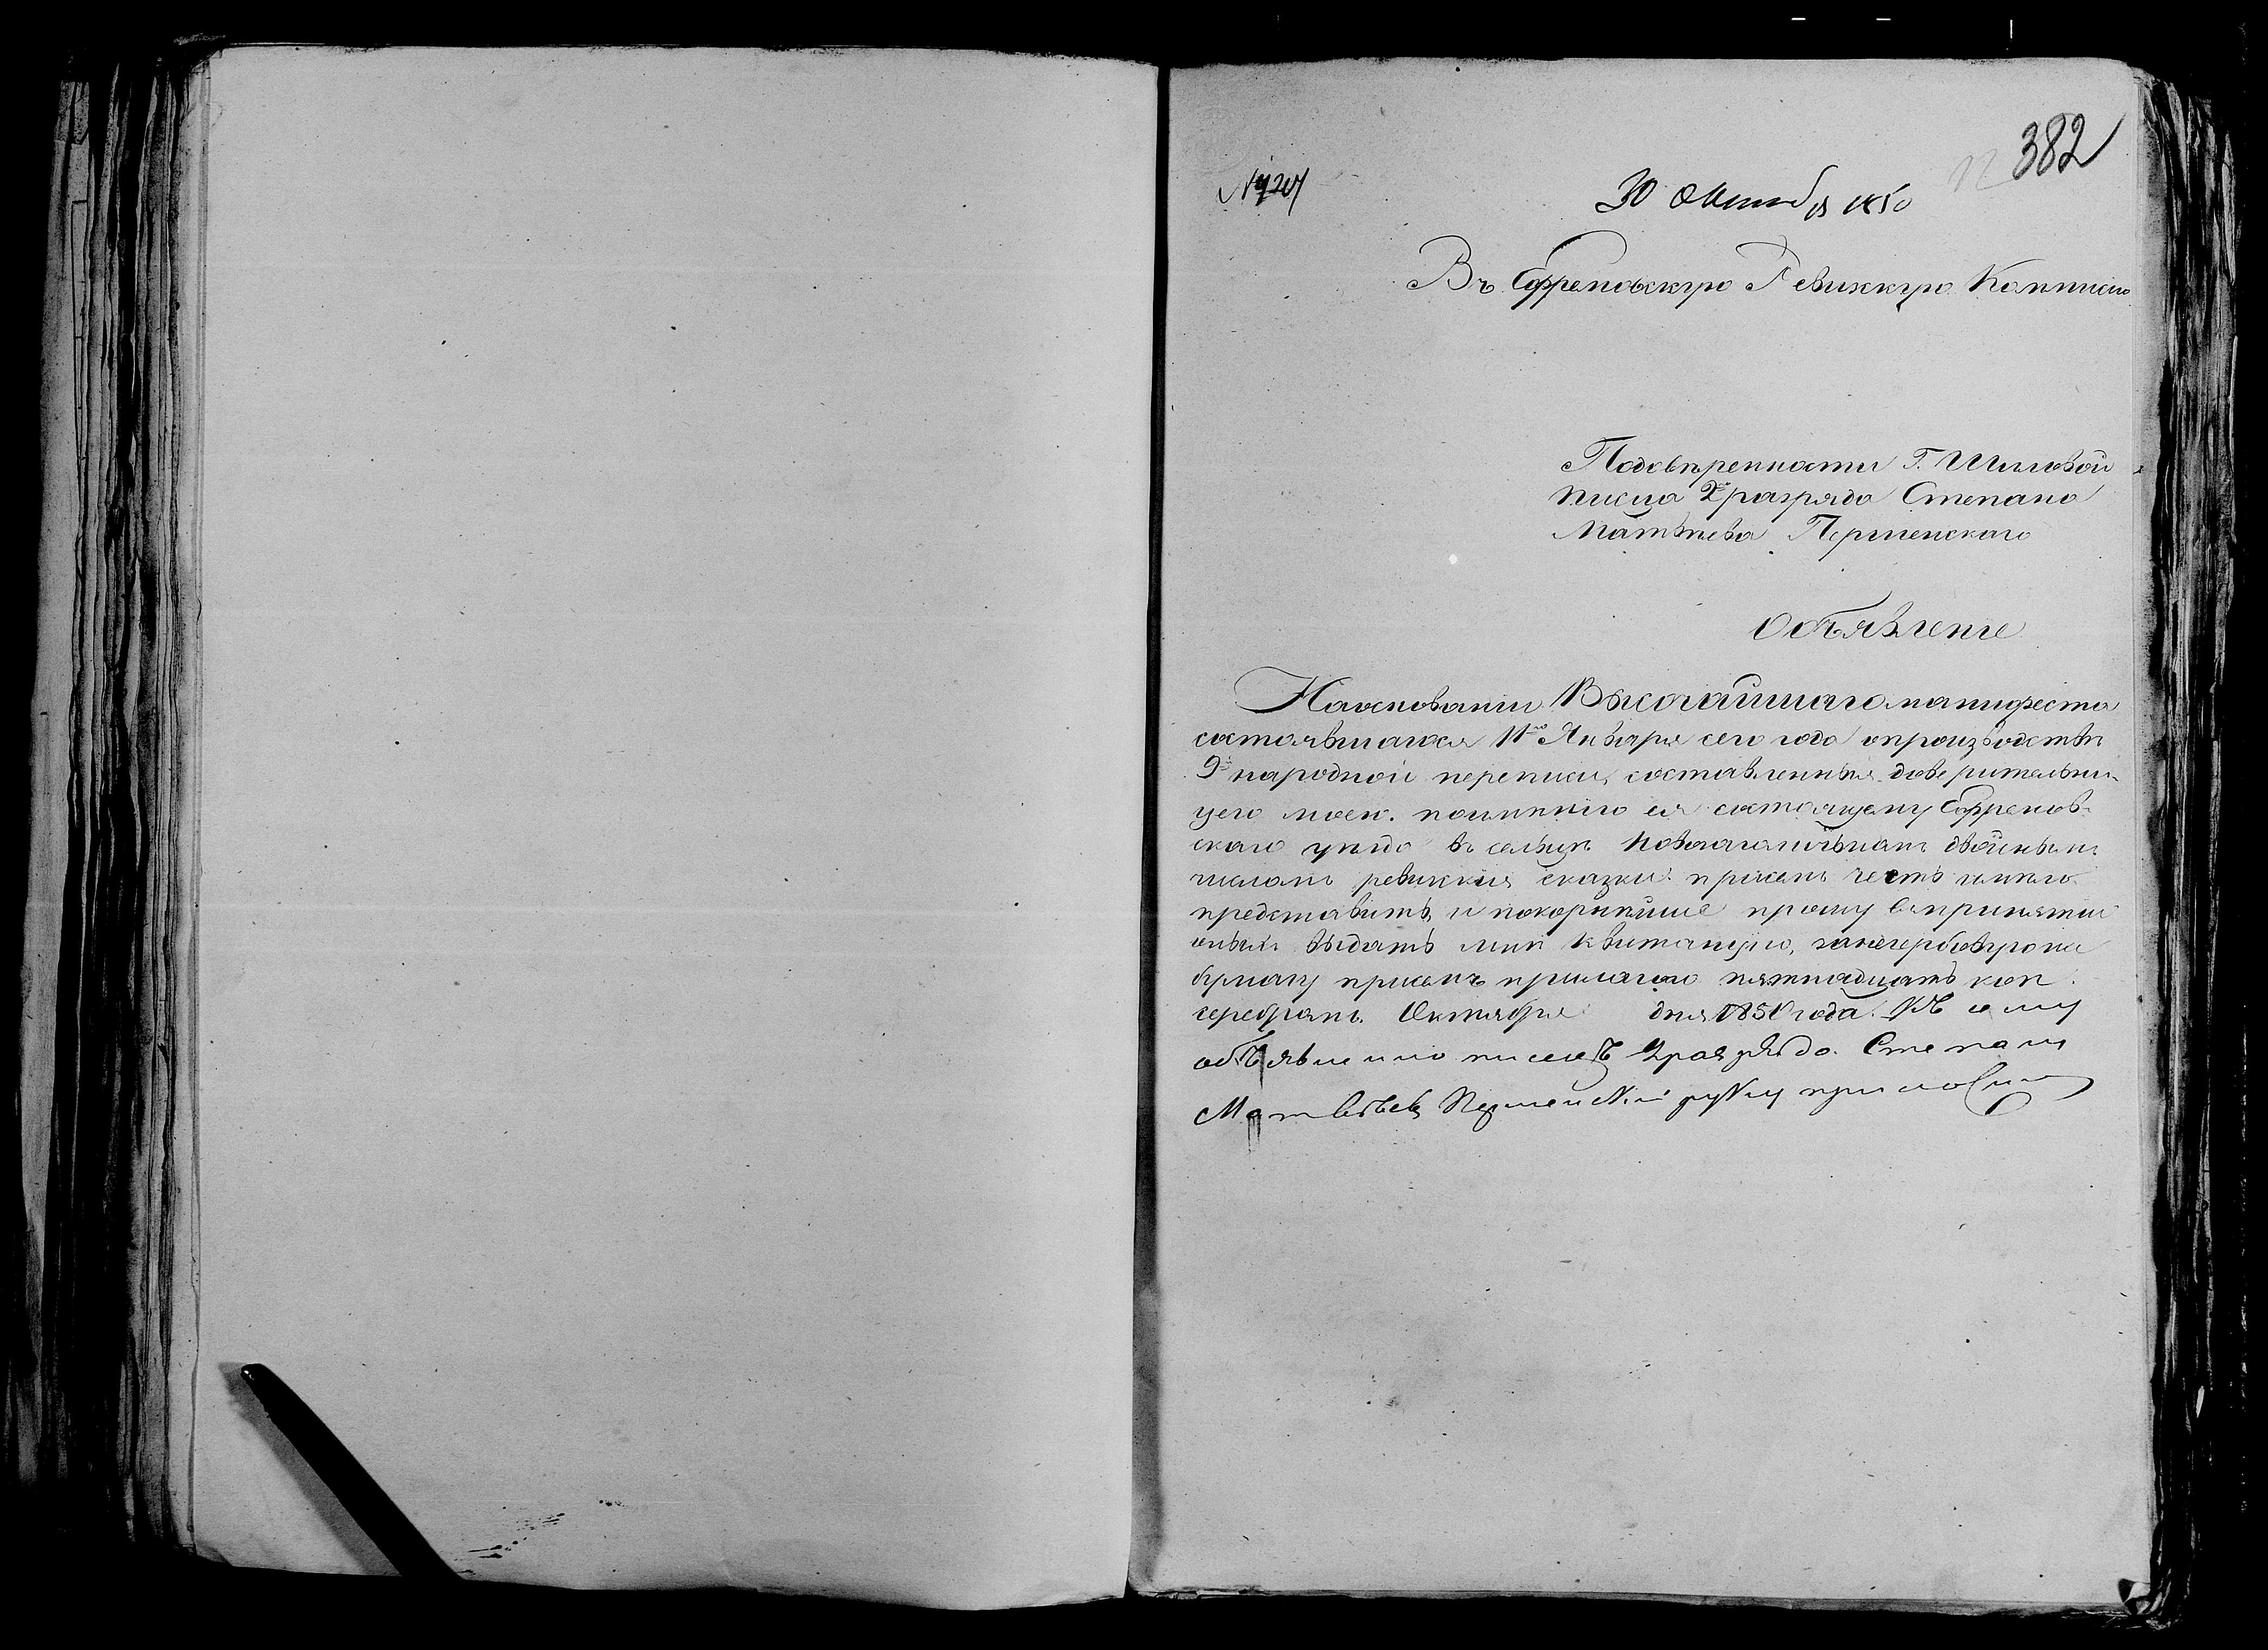 382
30 Октября 1850
Въ Ефремовскую Ревижкую Комисію
Подовѣренности Г. Шиловой
писца 2го разряда Степана
Матвѣева
Объявленіе
Наоснованіи Высочайшаго манифеста
состоявшагося 11го Января сего года опроизводствѣ
9й народной переписи, составленныя доверительни-
цею моею. поимѣнію ея состоящему Ефремов-
скаго уѣзда въ сельцѣ двойнымъ
числомъ ревижкія сказки присемъ честь имѣю
представить, и покорнѣйше прошу впринятіи
оныхъ выдать мнѣ квитанцію, загербовую
бумагу присемъ прилагаю пятнадцать коп.
серебромъ. Октября дня 1850 года. Къ сему
объявленію писецъ 2 разряда Степанъ
Матвѣевъ руку приложилъ